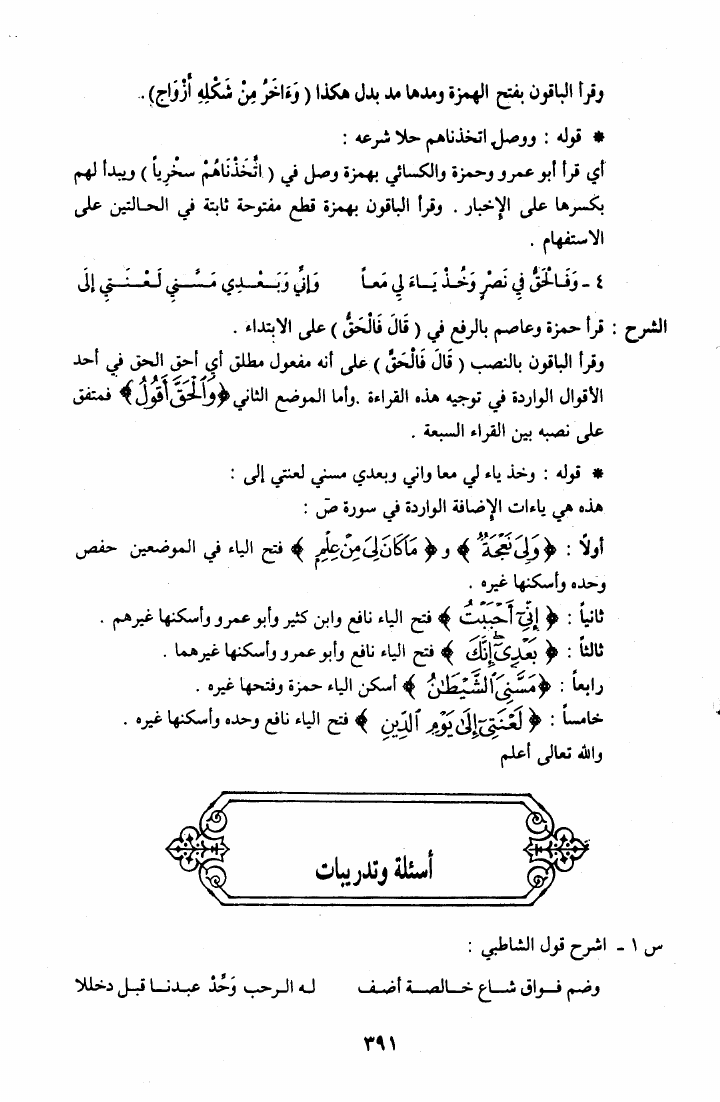 وقرأ الباقون بفتح الهمزة ومدها مد بدل هكذا ( وَءَاخَرُ مِنْ شَكْلِهِ أَزْوَاج) .
* قوله : ووصل اتخذناهم حلا شرعه :
أي قرأ أبو عمرو وحمزة والكسائي بهمزة وصل في ( اتَّخَذْنَاهُمْ سخْرِياً ) ويبدأ لهم
بكسرها على الإخبار . وقرأ الباقون بهمزة قطع مفتوحة ثابتة في الحالتين على
الاستفهام .
٤ - وَفَالْحَقُّ فِي نَصْرٍ وَخُذْ يَاءَ لِي مَعاً وَإِنِّي وَبَعْدِي مَسَّنِي لَعْنَتِي إِلَى
الشرح : قرأ حمزة وعاصم بالرفع في ( قَالَ فَالْحَقُّ ) على الابتداء .
وقرأ الباقون بالنصب ( قَالَ فَالْحَقَّ ) على أنه مفعول مطلق أي أحق الحق في أحد
الأقوال الواردة في توجيه هذه القراءة .وأما الموضع الثاني ﴿وَٱلْحَقَّ أَقُولُ﴾ فمتفق
على نصبه بين القراء السبعة .
* قوله : وخذ ياء لي معا واني وبعدي مسني لعنتي إلى :
هذه هي ياءات الإضافة الواردة في سورة صۤ :
أولاً : ﴿ وَلِىَ نَعْجَةٌ ﴾ و ﴿ مَاكَانَ لِىَ مِنْ عِلْمٍ ﴾ فتح الياء في الموضعين حفص
وحده وأسكنها غيره .
ثانياً : ﴿ إِنِّىٓ أَحْبَبْتُ ﴾ فتح الياء نافع وابن كثير وأبو عمرو وأسكنها غيرهم .
ثالثاً : ﴿ بَعْدِىٓ إِنَّكَ ﴾ فتح الياء نافع وأبو عمرو وأسكنها غيرهما .
رابعاً : ﴿ مَسَّنِىَ ٱلشَّيْطَٰنُ ﴾ أسكن الياء حمزة وفتحها غيره .
خامساً : ﴿ لَعْنَتِىٓ إِلَىٰ يَوْمِ ٱلدِّينِ ﴾ فتح الياء نافع وحده وأسكنها غيره .
والله تعالى أعلم
أسئلة وتدريبات
س ١ - اشرح قول الشاطبي :
وضم فواق شاع خالصة أضف له الرحب وَحِّدْ عبدنا قبل دخللا
٣٩١